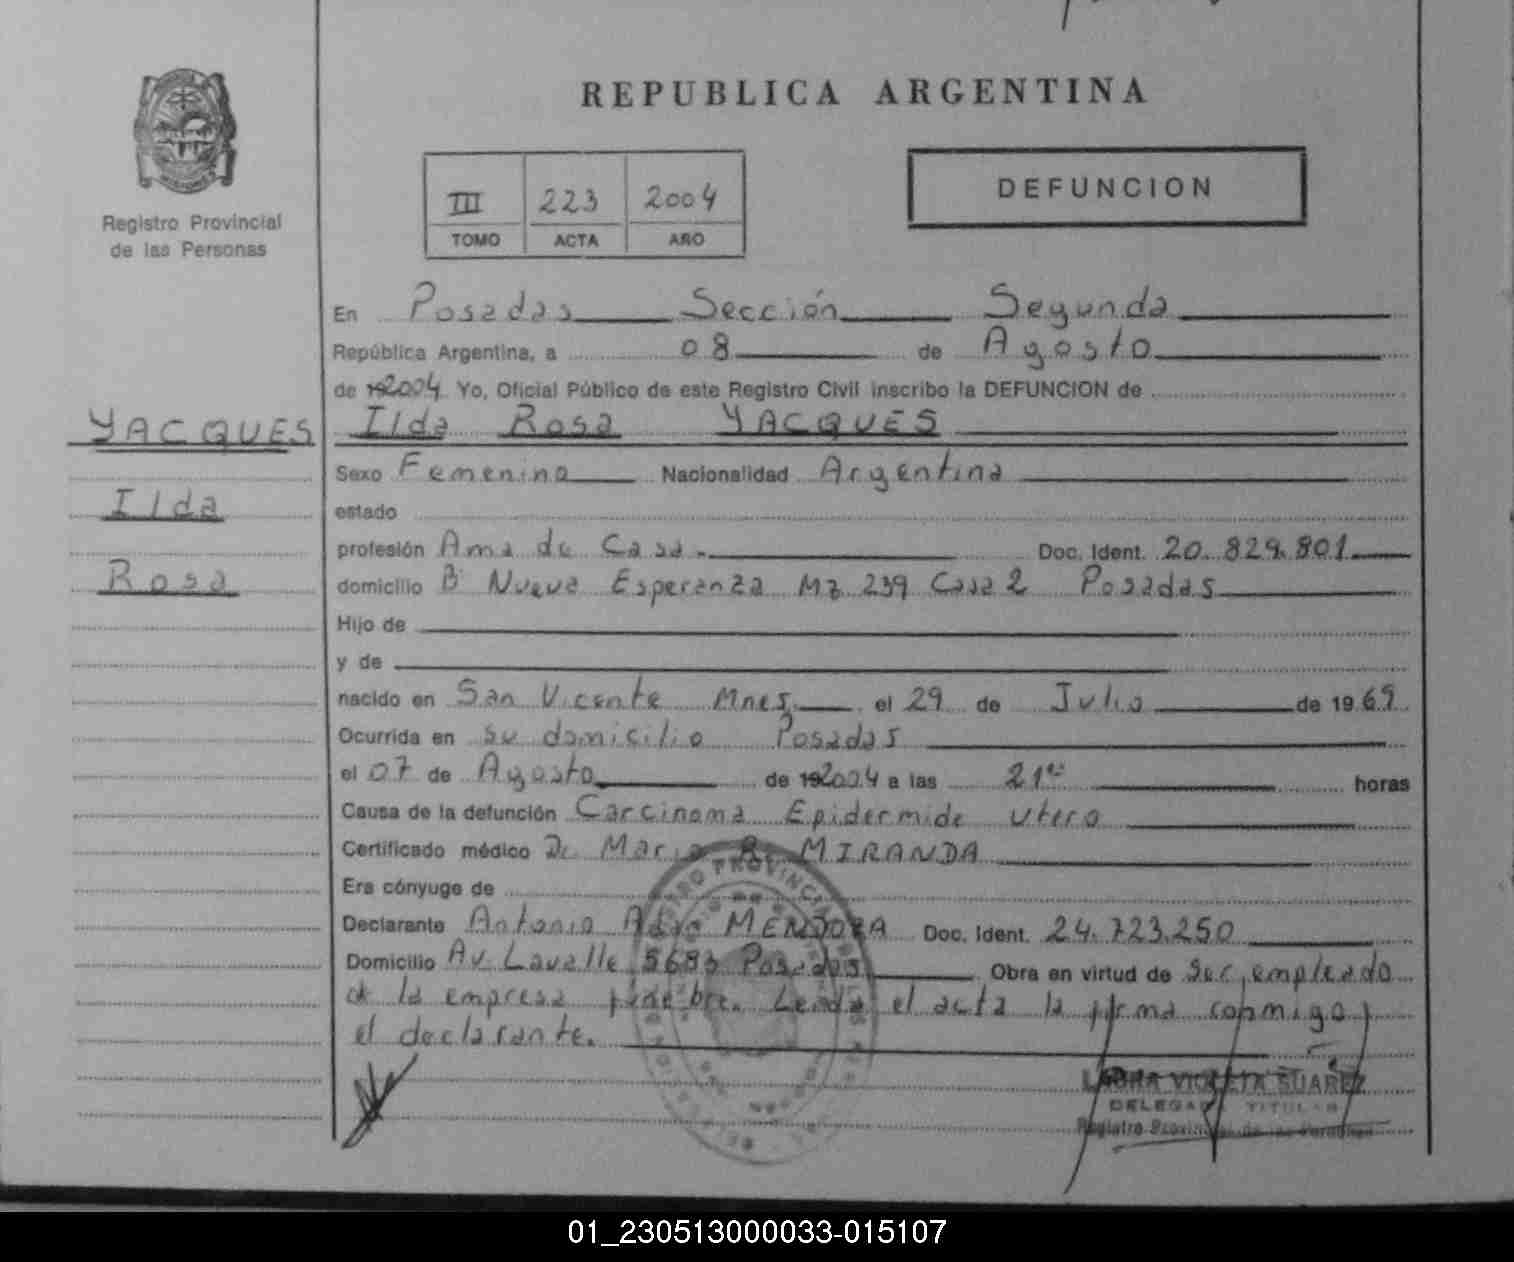 REPUBLICA ARGENTINA
Registro Provincial
de las Personas
III 223 2004
TOMO ACTA AÑO
DEFUNCION
En Posadas Sección Segunda
República Argentina, a 08 de Agosto
de 192004 Yo, Oficial Público de este Registro Civil inscribo la DEFUNCION de
YACQUES
Ilda
Rosa
Ilda Rosa YACQUES
Sexo Femenino Nacionalidad Argentina
estado
profesión Ama de Casa. Doc. Ident. 20.829.801
domicilio B° Nueva Esperanza Mz 239 Casa 2 Posadas
Hijo de
y de
nacido en San Vicente Mnes. el 29 de Julio de 1969
Ocurrida en su domicilio Posadas
el 07 de Agosto de 192004 a las 21 horas
Causa de la defunción Carcinoma Epidermide utero
Certificado médico Dr. Mario R. MIRANDA
Era cónyuge de
Declarante Antonio MENDOZA Doc. Ident. 24.723.250
Domicilio Av. Lavalle 5683 Posadas Obra en virtud de ser empleado
de la empresa fúnebre. Leida el acta la firma conmigo
el declarante.
LAURA VIOLETA SUAREZ
DELEGADA TITULAR
Registro Provincial de las Personas
01_230513000033-015107